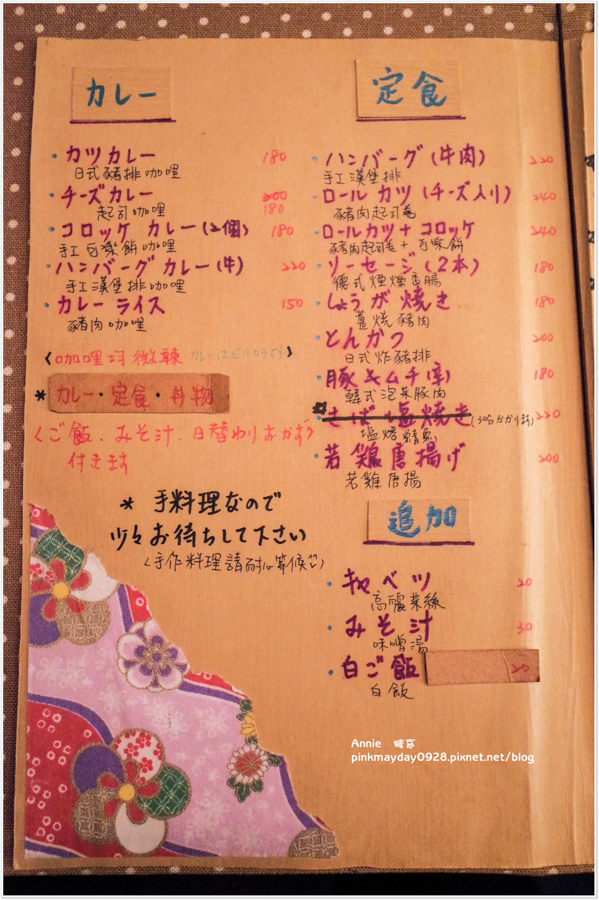 カレー
・カツカレー 180
日式豬排咖哩
・チーズカレー 200 180
起司咖哩
・コロッケ カレー(2個) 180
手工可樂餅咖哩
・ハンバーグ カレー(牛) 220
手工漢堡排咖哩
・カレー ライス 150
豬肉咖哩
《咖哩均微辣 カレーはピリカラです》
*カレー・定食・丼物
〈ご飯.みそ汁.日替わりおかず〉
付きます
* 手料理なので
少々お待ちして下さい
(手作料理請耐心等候)
定食
・ハンバーグ(牛肉) 220
手工漢堡排
・ロール カツ(チーズ入り) 240
豬肉起司卷
・ロールカツ+コロッケ 240
豬肉起司卷+可樂餅
・ソーセージ(2本) 180
德式煙燻香腸
・しょうが焼き 180
薑燒豬肉
・とんかつ 200
日式炸豬排
・豚キムチ(辛) 180
韓式泡菜豚肉
さば塩焼き(30分かかります) 220
塩烤鯖魚
・若鶏唐揚げ 200
若雞唐揚
追加
・キャベツ 20
高麗菜絲
・みそ汁 30
味噌湯
・白ご飯 20
白飯
Annie
pinkmayday0928.pixnet.net/blog